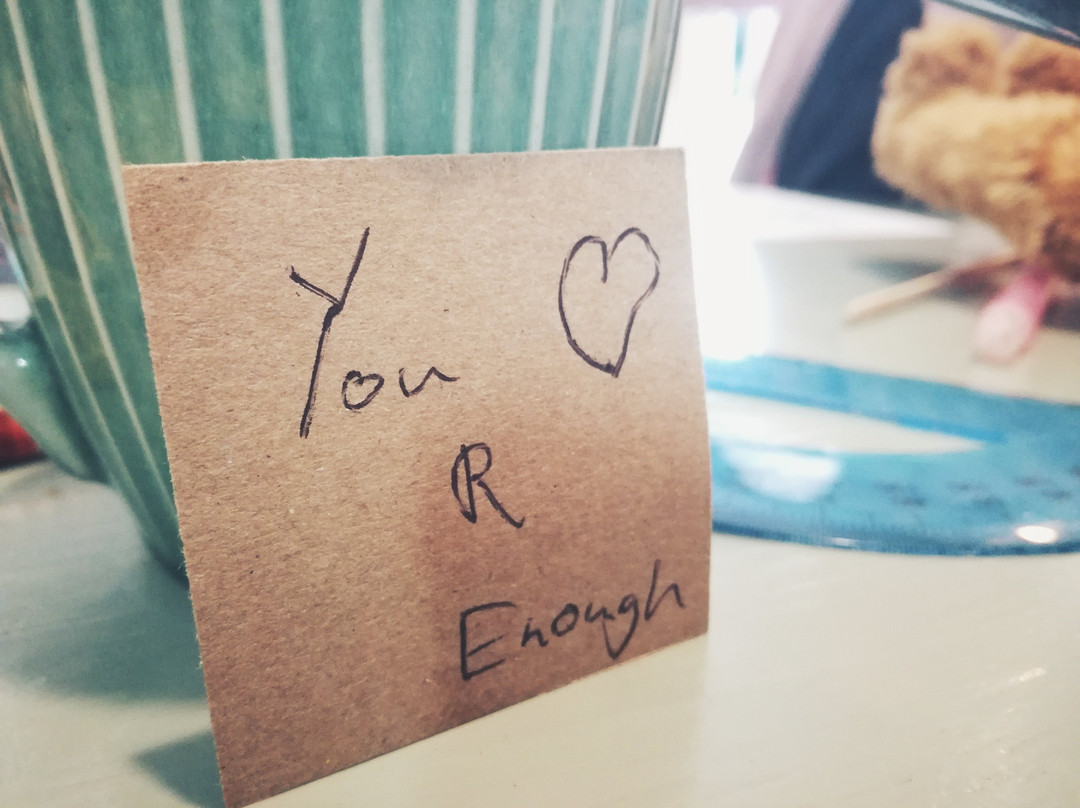 You
R
Enough